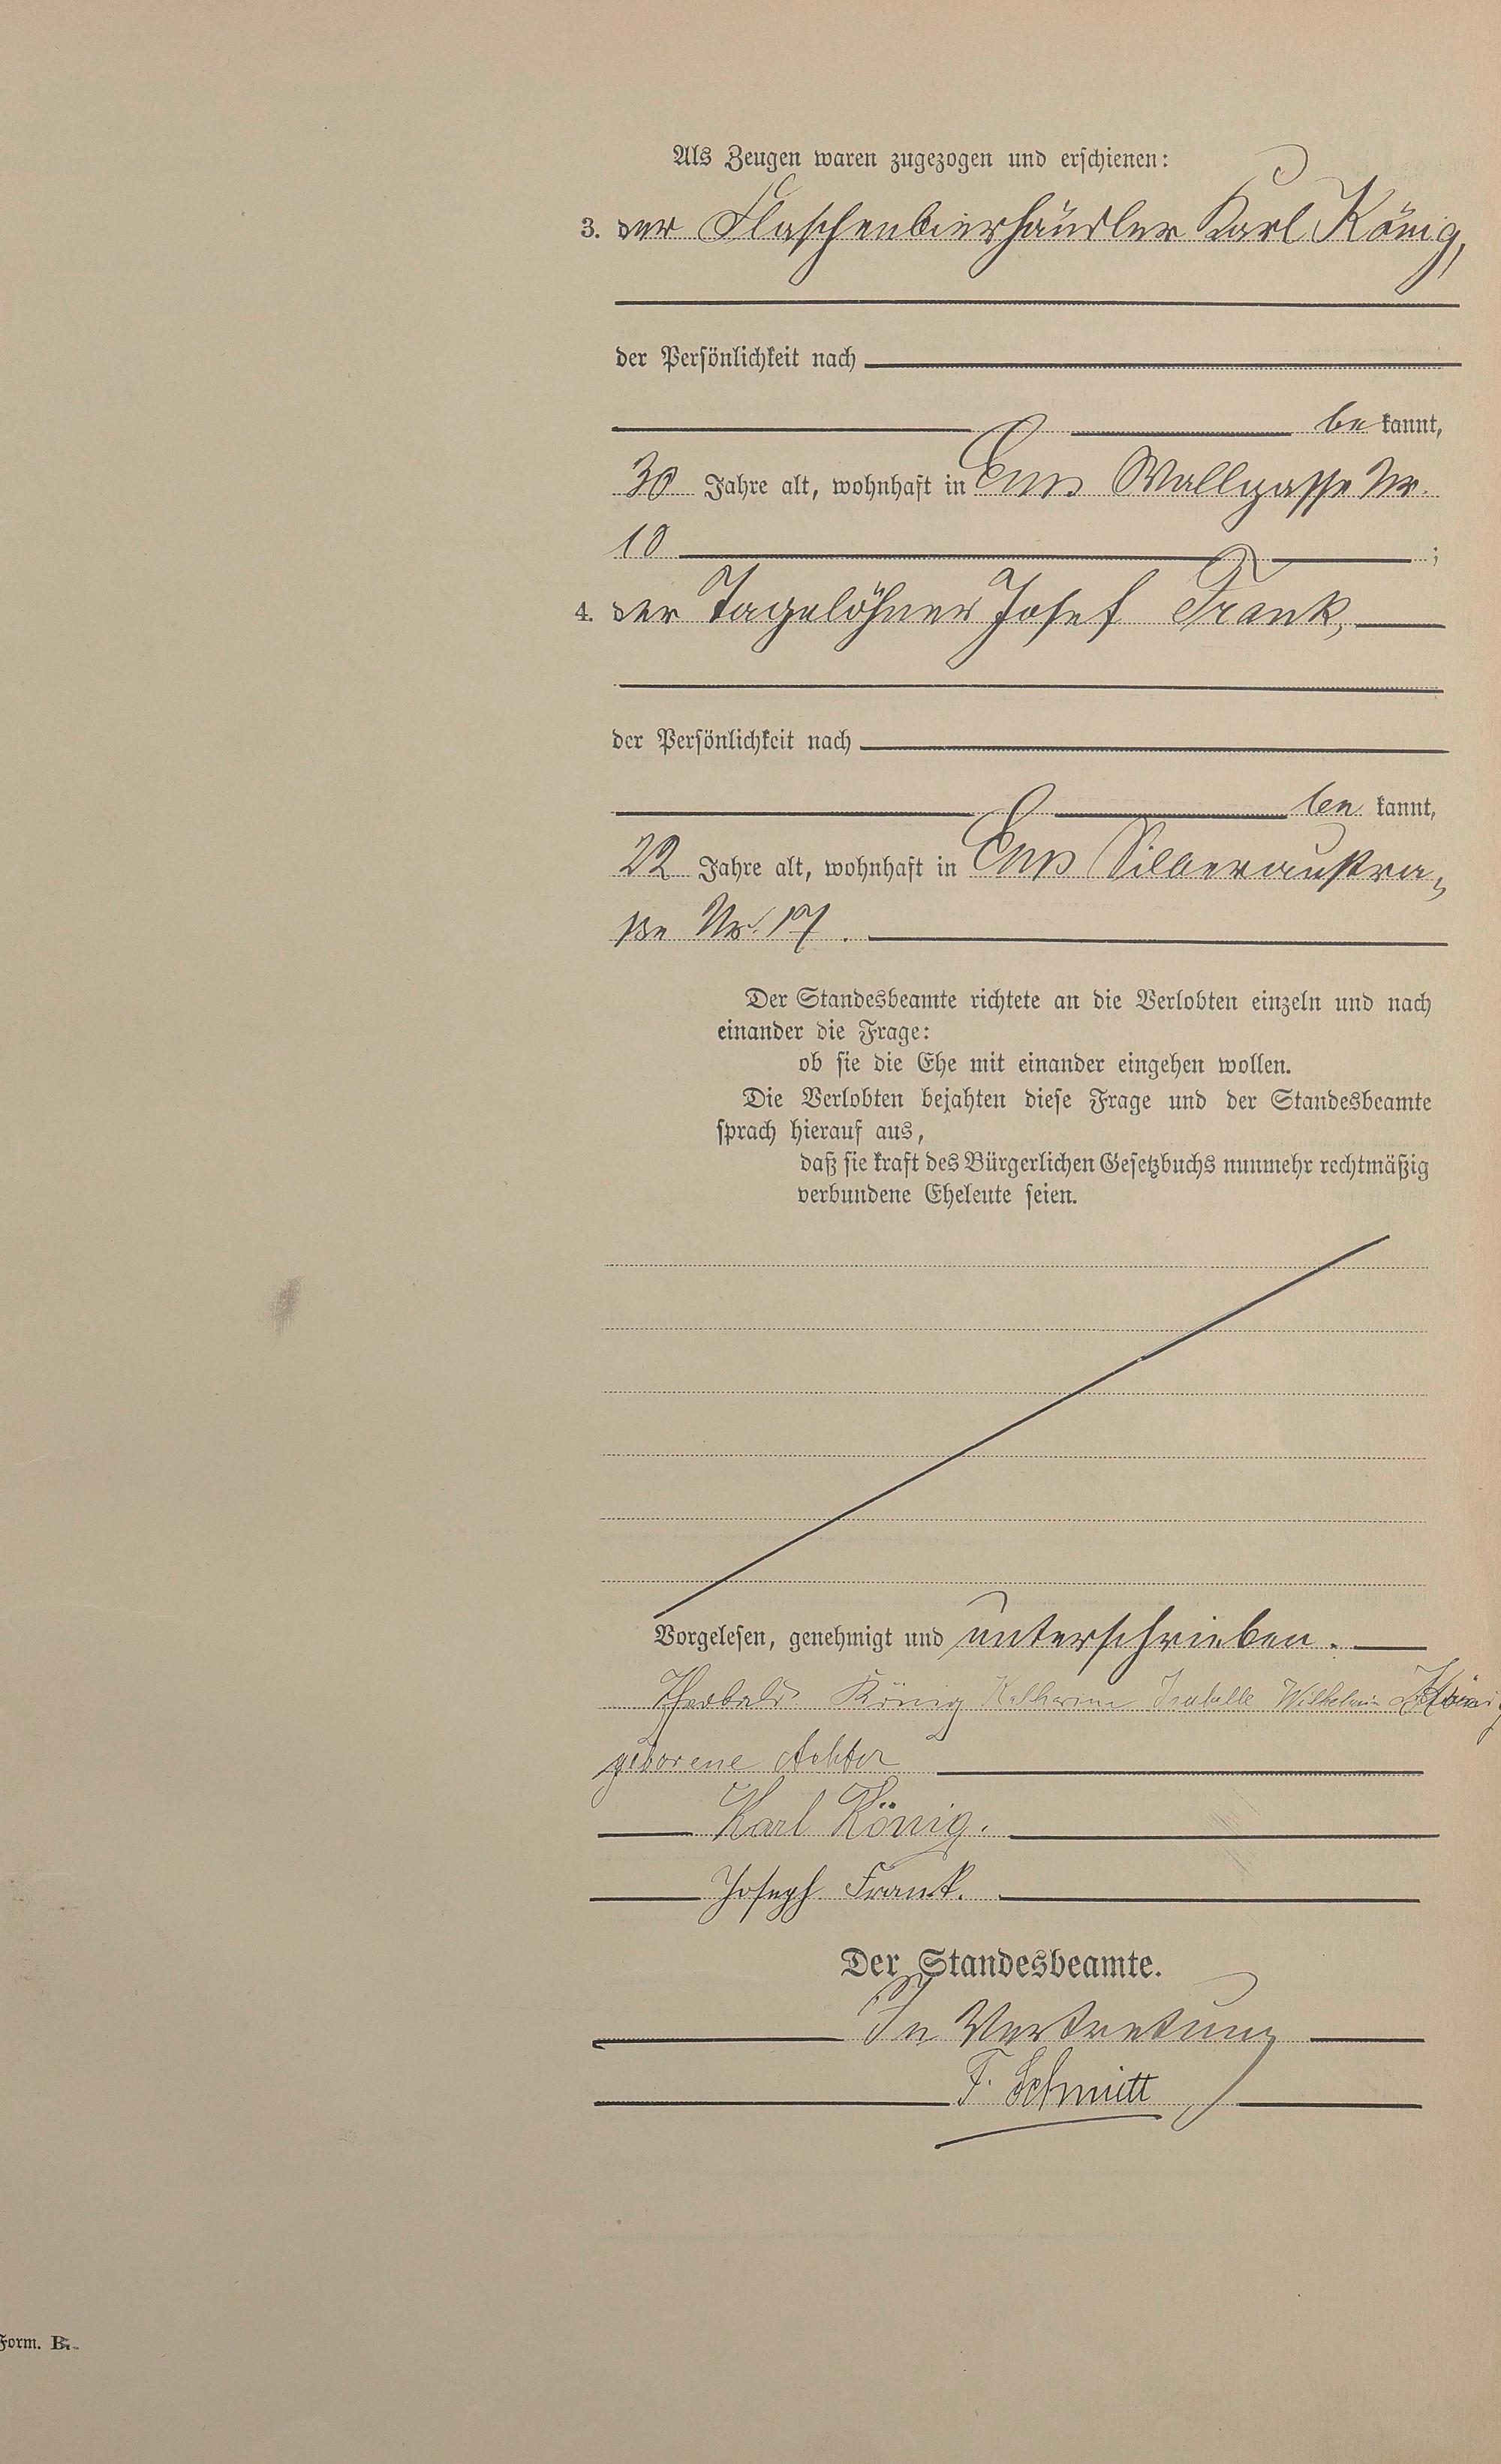 Als Zeugen waren zugezogen und erschienen:
3. der Flaschenbierhändler Karl König,
der Persönlichkeit nach
be kannt,
30 Jahre alt, wohnhaft in Ems Wallgasse Nr.
10 ;
4. der Tagelöhner Josef Frank,
der Persönlichkeit nach
be kannt,
22 Jahre alt, wohnhaft in Ems Silberaustra-
ße Nr. 17.
Der Standesbeamte richtete an die Verlobten einzeln und nach
einander die Frage:
ob sie die Ehe mit einander eingehen wollen.
Die Verlobten bejahten diese Frage und der Standesbeamte
sprach hierauf aus,
daß sie kraft des Bürgerlichen Gesetzbuchs nunmehr rechtmäßig
verbundene Eheleute seien.
Vorgelesen, genehmigt und unterschrieben.
Theobald König Katharina Isabelle Wilhelmine König
geborene Achter
Karl König.
Joseph Frank.
Der Standesbeamte.
In Vertretung
F. Schmitt
Form. B.